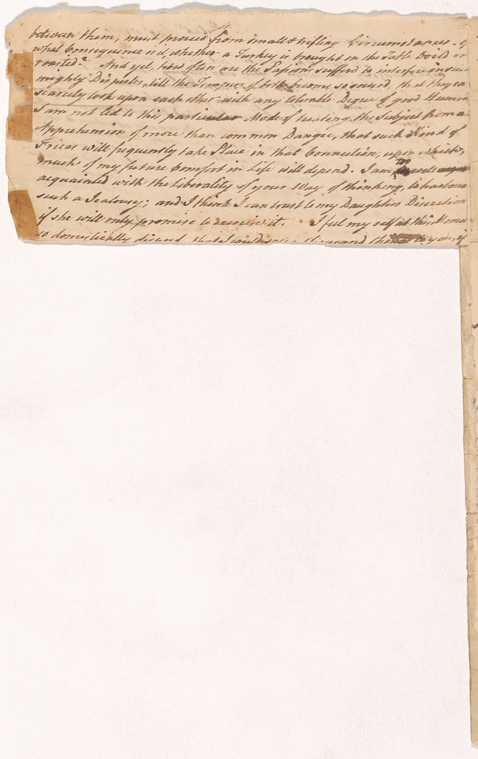 between them, must proceed from small & trifling Circumstances. Of
what Consequence is it, whether a Turkey is brought on the Table boild or
roasted? And yet, how often are the Passions sufferd to interfere in such
mighty Disputes, till the Tempers of both become so sowerd, that they can
scarcely look upon each other with any tolerable Degree of good Humor
I am not led to this particular Mode of treating the Subject from an
Apprehension of more than common Danger, that such Kind of
Fricas will frequently take Place in that Connection, upon which,
much of my future Comfort in Life will depend. I am too well
acquainted with the Liberality of your Way of thinking, to harbour
such a Jealousy; and I think I can trust to my Daughters Discretion
if she will only promise to exercise it. I feel my self at this Moment
so domestically disposd that I could